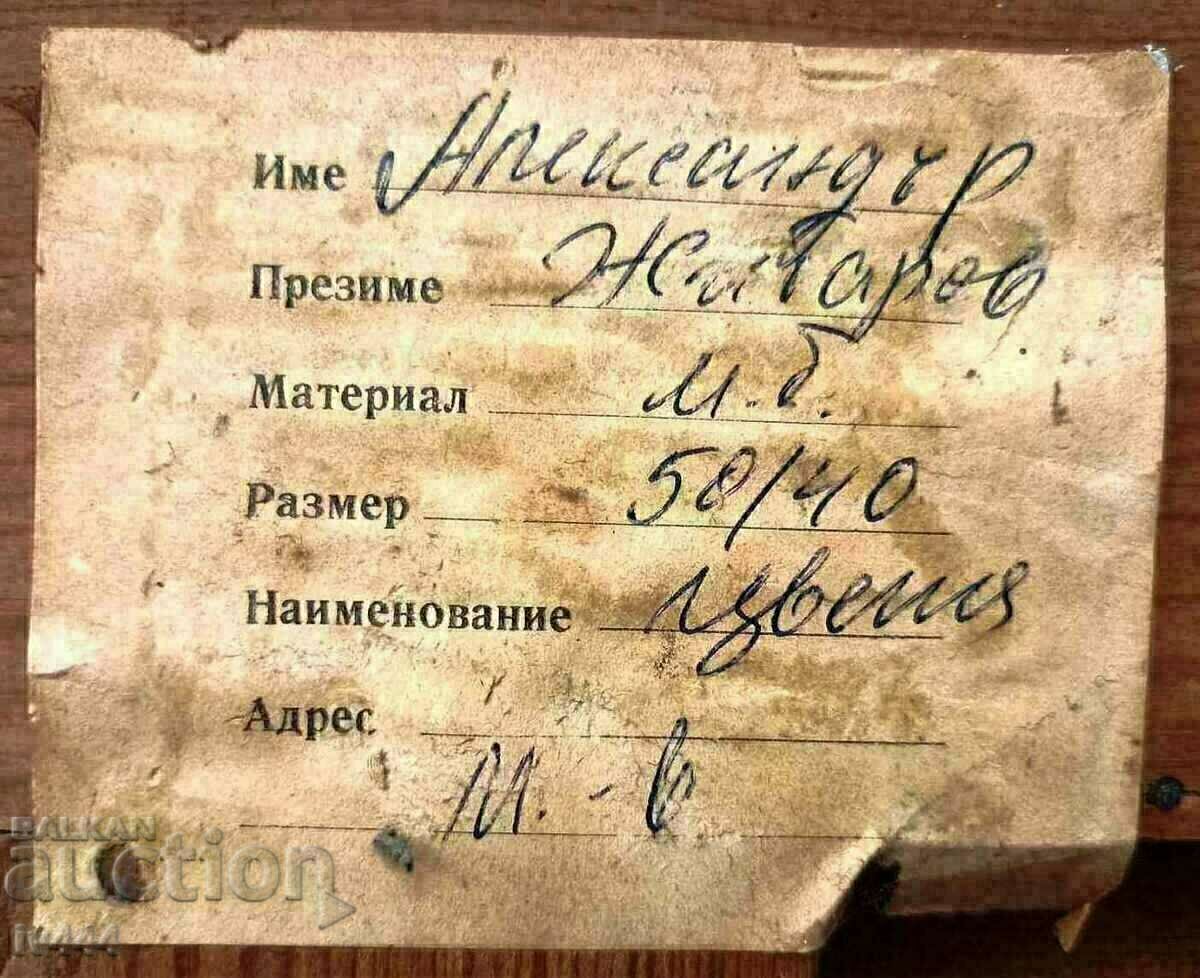 Име Александър
Презиме Жабаров
Материал м.б.
Размер 50/40
Наименование цветя
Адрес
BALKAN
auction
iv444